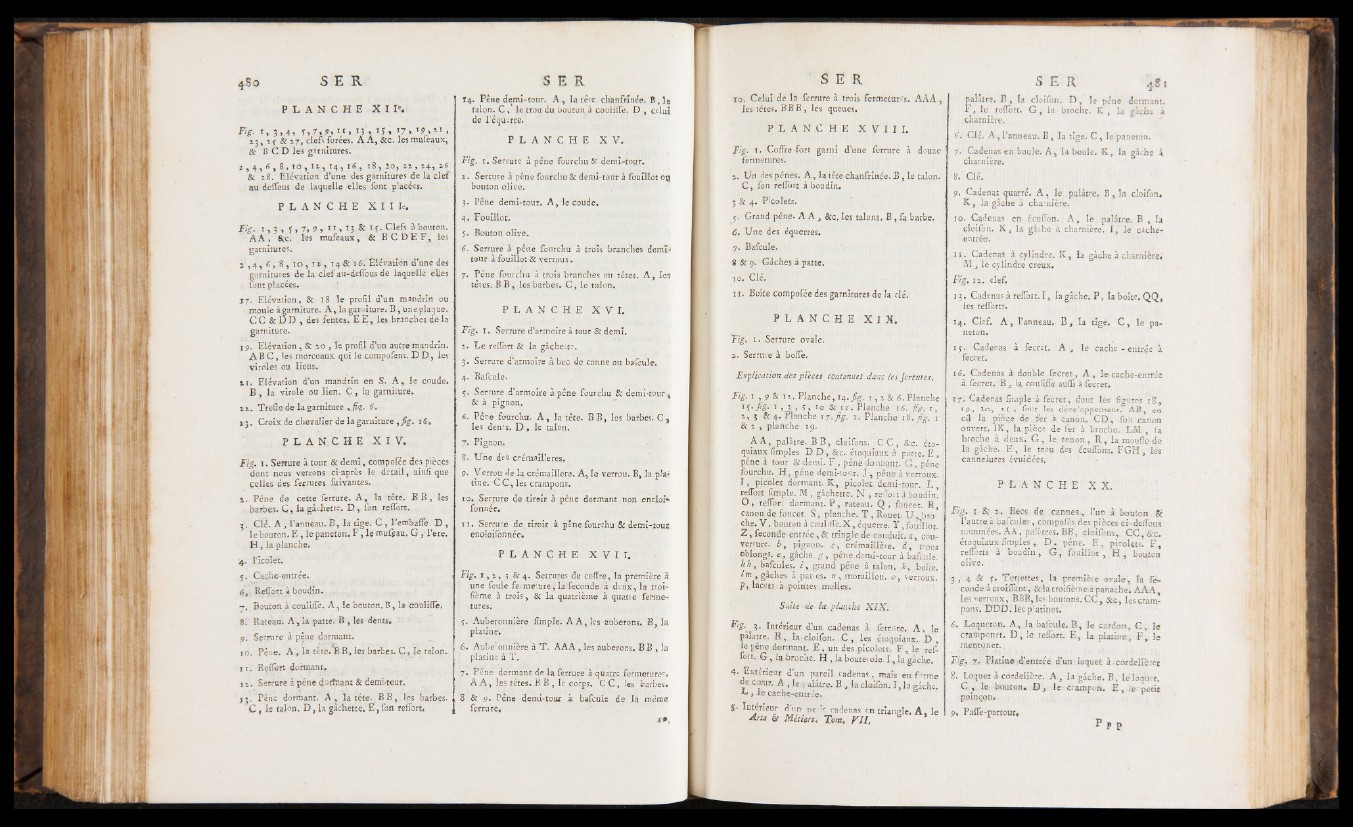 480 SER SER
PLANCHE XIIe.
Fig. 1, 3, 4, 5, 7, 9, 11, 13, 15, 17, 19, 21,
23, 25 & 27, clefs forées. A A, &c. les museaux,
& B C D les garnitures.
2, 4, 6, 8, 10, 12, 14, 16, 18, 20, 22, 24, 26
& 28. Elévation d'une des garnitures de la clef
au dessous de laquelle elles sont placées.
PLANCHE XIIIe.
Fig. 1, 3, 5, 7, 9, 11, 13 & 15. Clefs à bouton.
AA, &c. les museaux, & B C D E F, les
garnitures.
2, 4, 6, 8, 10, 12, 14 & 16. Elévation d'une des
garnitures de la clef au-dessous de laquelle elles
sont placées.
17. Elévation, & 18 le profil d'un mandrin ou
moule à garniture. A, la garniture. B, une plaque.
C C & D D, des fentes. E E, les branches de la
garniture.
19. Elévation, & 20, le profil d'un autre mandrin.
A B C, les morceaux qui le composent. D D, les
viroles ou liens.
21. Elévation d'un mandrin en S. A, le coude.
B, la virole ou lien. C, la garniture.
22. Treffle de la garniture, fig. 6.
23. Croix de chevalier de la garniture, fig. 16.
PLANCHE XIV.
Fig. 1. Serrure à tour & demi, composée des pièces
dont nous verrons ci-après le détail, ainsi que
celles des serrures suivantes.
2. Pêne de cette serrure. A, la tête. B B, les
barbes. C, la gâchette. D, son ressort.
3. Clé. A, l'anneau. B, la tige. C, l'embasse. D,
le bouton. E, le paneton. F, le museau. G, l'ere.
H, la planche.
4. Picolet.
5. Cache-entrée.
6. Ressort à boudin.
7. Bouton à coulisse. A, le bouton, B, la coulisse.
8. Rateau. A, la patte. B, les dents.
9. Serrure à pêne dormant.
10. Pêne. A, la tête. B B, les barbes. C, le talon.
11. Ressort dormant.
12. Serrure à pêne dormant & demi-tour.
13. Pêne dormant. A, la tête. B B, les barbes.
C, le talon. D, la gâchette. E, son ressort.
14. Pêne demi-tour. A, la tête chanfrinée. B, le
talon. C, le trou du bouton à coulisse. D, celui
de l'équerre.
PLANCHE XV.
Fig. 1. Serrure à pêne fourchu & demi-tour.
2. Serrure à pêne fourchu & demi-tour à fouillot ou
bouton olive.
3. Pêne demi-tour. A, le coude.
4. Fouillot.
5. Bouton olive.
6. Serrure à pêne fourchu à trois branches demi-
tour à fouillot & verrous.
7. Pêne fourchu à trois branches ou têtes. A, les
têtes. B B, les barbes. C, le talon.
PLANCHE XVI.
Fig. 1. Serrure d'armoire à tour & demi.
2. Le ressort & la gâchette.
3. Serrure d'armoire à bec de canne ou bascule.
4. Bascule.
5. Serrure d'armoire à pêne fourchu & demi-tour,
& à pignon.
6. Pêne fourchu. A, la tête. B B, les barbes. C,
les dents. D, le talon.
7. Pignon.
8. Une des crémailleres.
9. Verrou de la crémaillere. A, le verrou. B, la pla-
tine. C C, les crampons.
10. Serrure de tiroir à pêne dormant non encloi-
sonnée.
11. Serrure de tiroir à pêne fourchu & demi-tour
encloisonnée.
PLANCHE XVII.
Fig. 1, 2, 3 & 4. Serrures de coffre, la première à
une seule fermeture, la seconde à deux, la troi-
sième à trois, & la quatrième à quatre ferme-
tures.
5. Auberonnière simple. A A, les auberons. B, la
platine.
6. Auberonnière à T. A A A, les auberons. B B, la
platine à T.
7. Pêne dormant de la serrure à quatre fermetures.
A A, les têtes. B B, le corps. C C, les barbes.
8 & 9. Pêne demi-tour à bascule de la même
serrure.
SER SER 481
10. Celui de la serrure à trois fermetures. A A A,
les têtes. B B B, les queues.
PLANCHE XVIII.
Fig. 1. Coffre-fort garni d'une serrure à douze
fermetures.
2. Un des pênes. A, la tête chanfrinée. B, le talon.
C, son ressort à boudin.
3 & 4. Picolets.
5. Grand pêne. A A, &c, les talons. B, sa barbe.
6. Une des équerres.
7. Bascule.
8 & 9. Gâches à patte.
10. Clé.
11. Boîte composée des garnitures de la clé.
PLANCHE XIX.
Fig. 1. Serrure ovale.
2. Serrure à bosse.
Explication des pièces contenues dans les serrures.
Fig. 1, 9 & 12. Planche, 14. fig. 1, 2 & 6. Planche
15. fig. 1, 3, 5, 10 & 11. Planche 16. fig. 1,
2, 3 & 4. Planche 17. fig. 1. Planche 18. fig. 1
& 2, planche 19.
A A, palêtre. B B, cloisons. C C, &c. éto-
quiaux simples D D, &c. étoquiaux à patte. E,
pêne à tour & demi. F, pêne dormant. G, pêne
fourchu. H, pêne demi-tour. J, pêne à verroux.
I, picolet dormant. K, picolet demi-tour. L,
ressort simple. M, gâchette. N, ressort à boudin.
O, ressort dormant. P, rateau. Q, foncet. R,
canon de foncet. S, planche. T, Rouet. U, bro-
che. V, bouton à coulisse. X, équerre. Y, fouillot.
Z, seconde entrée, & tringle de conduit. a, cou-
verture. b, pignon. c, crémaillère. d, trous
oblongs. e, gâche. g, pêne demi-tour à bascule.
h h, bascules. i, grand pêne à talon. k, boîte.
l m, gâches à pattes. n, moraillon. o, verroux.
p, lacets à pointes molles.
Suite de la planche XIX.
Fig. 3. Intérieur d'un cadenas à serrure. A, le
palâtre. B, la cloison. C, les étoquiaux. D,
le pêne dormant. E, un des picolets. F, le res-
sort. G, la broche. H, la bouterole. I, la gâche.
4. Extérieur d'un pareil cadenas, mais en forme
de cœur. A, le palâtre. B, la cloison. I, la gâche.
L, le cache-entrée.
5. Intérieur d'un petit cadenas en triangle. A, le
Arts & Métiers. Tom. VII.
palâtre. B, la cloison. D, le pêne dormant.
F, le ressort. G, la broche. K, la gâche à
charnière.
6. Clé. A, l'anneau. B, la tige. C, le paneton.
7. Cadenas en boule. A, la boule. K, la gâche à
charnière.
8. Clé.
9. Cadenat quarré. A, le palâtre. B, la cloison.
K, la gâche à charnière.
10. Cadenas en écusson. A, le palâtre. B, la
cloison. K, la gâche à charnière. I, le cache-
entrée.
11. Cadenas à cylindre. K, la gâche à charnière.
M, le cylindre creux.
Fig. 12. clef.
13. Cadenas à ressort. I, la gâche. P, la boîte. QQ,
les ressorts.
14. Clef. A, l'anneau. B, la tige. C, le pa-
neton.
15. Cadenas à secret. A, le cache-entrée à
secret.
16. Cadenas à double secret, A, le cache-entrée
à secret. B, la coulisse aussi à secret.
17. Cadenas simple à secret, dont les figures 18,
19, 20, 21. sont les développemens. AB, en
est la pièce de fer à canon. CD, son canon
ouvert. IK, la pièce de fer à broche. LM, sa
broche à deux. G, le tenon, R, la moufle de
la gâche. E, le trou des écussons. FGH, les
cannelures évuidées.
PLANCHE XX.
Fig. 1 & 2. Becs de cannes, l'un à bouton &
l'autre à bascules, composés des pièces ci-dessous
nommées. AA, palâtres. BB, cloisons, CC, &c.
étoquiaux simples, D, pêne. E, picolets. F,
ressorts à boudin, G, fouillot, H, bouton
olive.
3, 4 & 5. Terjettes, la première ovale, la se-
conde à croissant, & la troisième à panache. AAA,
les verroux, BBB, les boutons. CC, &c, les cram-
pons. DDD. les platines.
6. Loqueton. A, la bascule. B, le cordon, C, le
cramponet. D, le ressort. E, la platine, F, le
mentonet.
Fig. 7. Platine d'entrée d'un loquet à cordelière
8. Loquet à cordelière. A, la gâche. B, le loquet.
C, le bouton. D, le crampon. E, le petit
poinçon.
9. Passe-partout.
Ppp